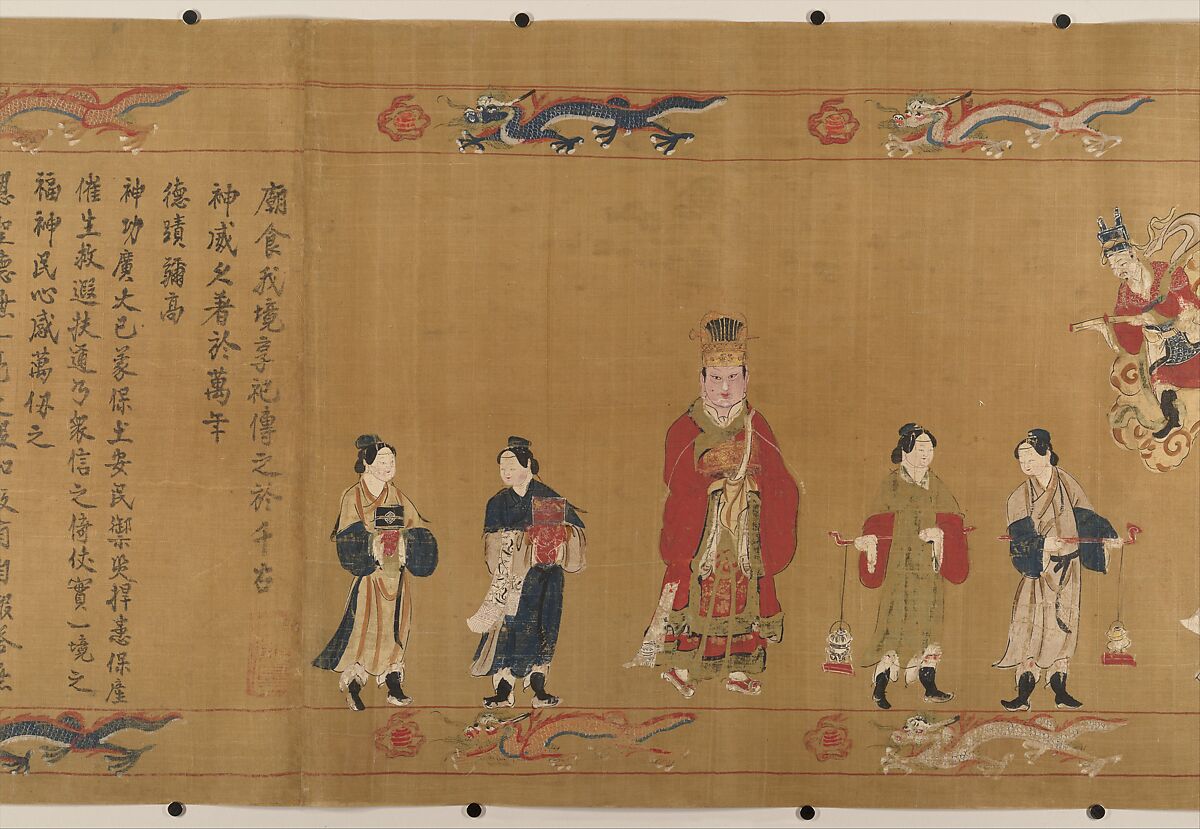 廟食我境享祀傳之於千古
神威久著於萬年
德蹟彌高
神功廣大已蒙保土安民禦災捍患保產
催生救遐扶邇乃衆信之倚仗實一境之
福神民心感萬仞之
恩聖德無一毫之